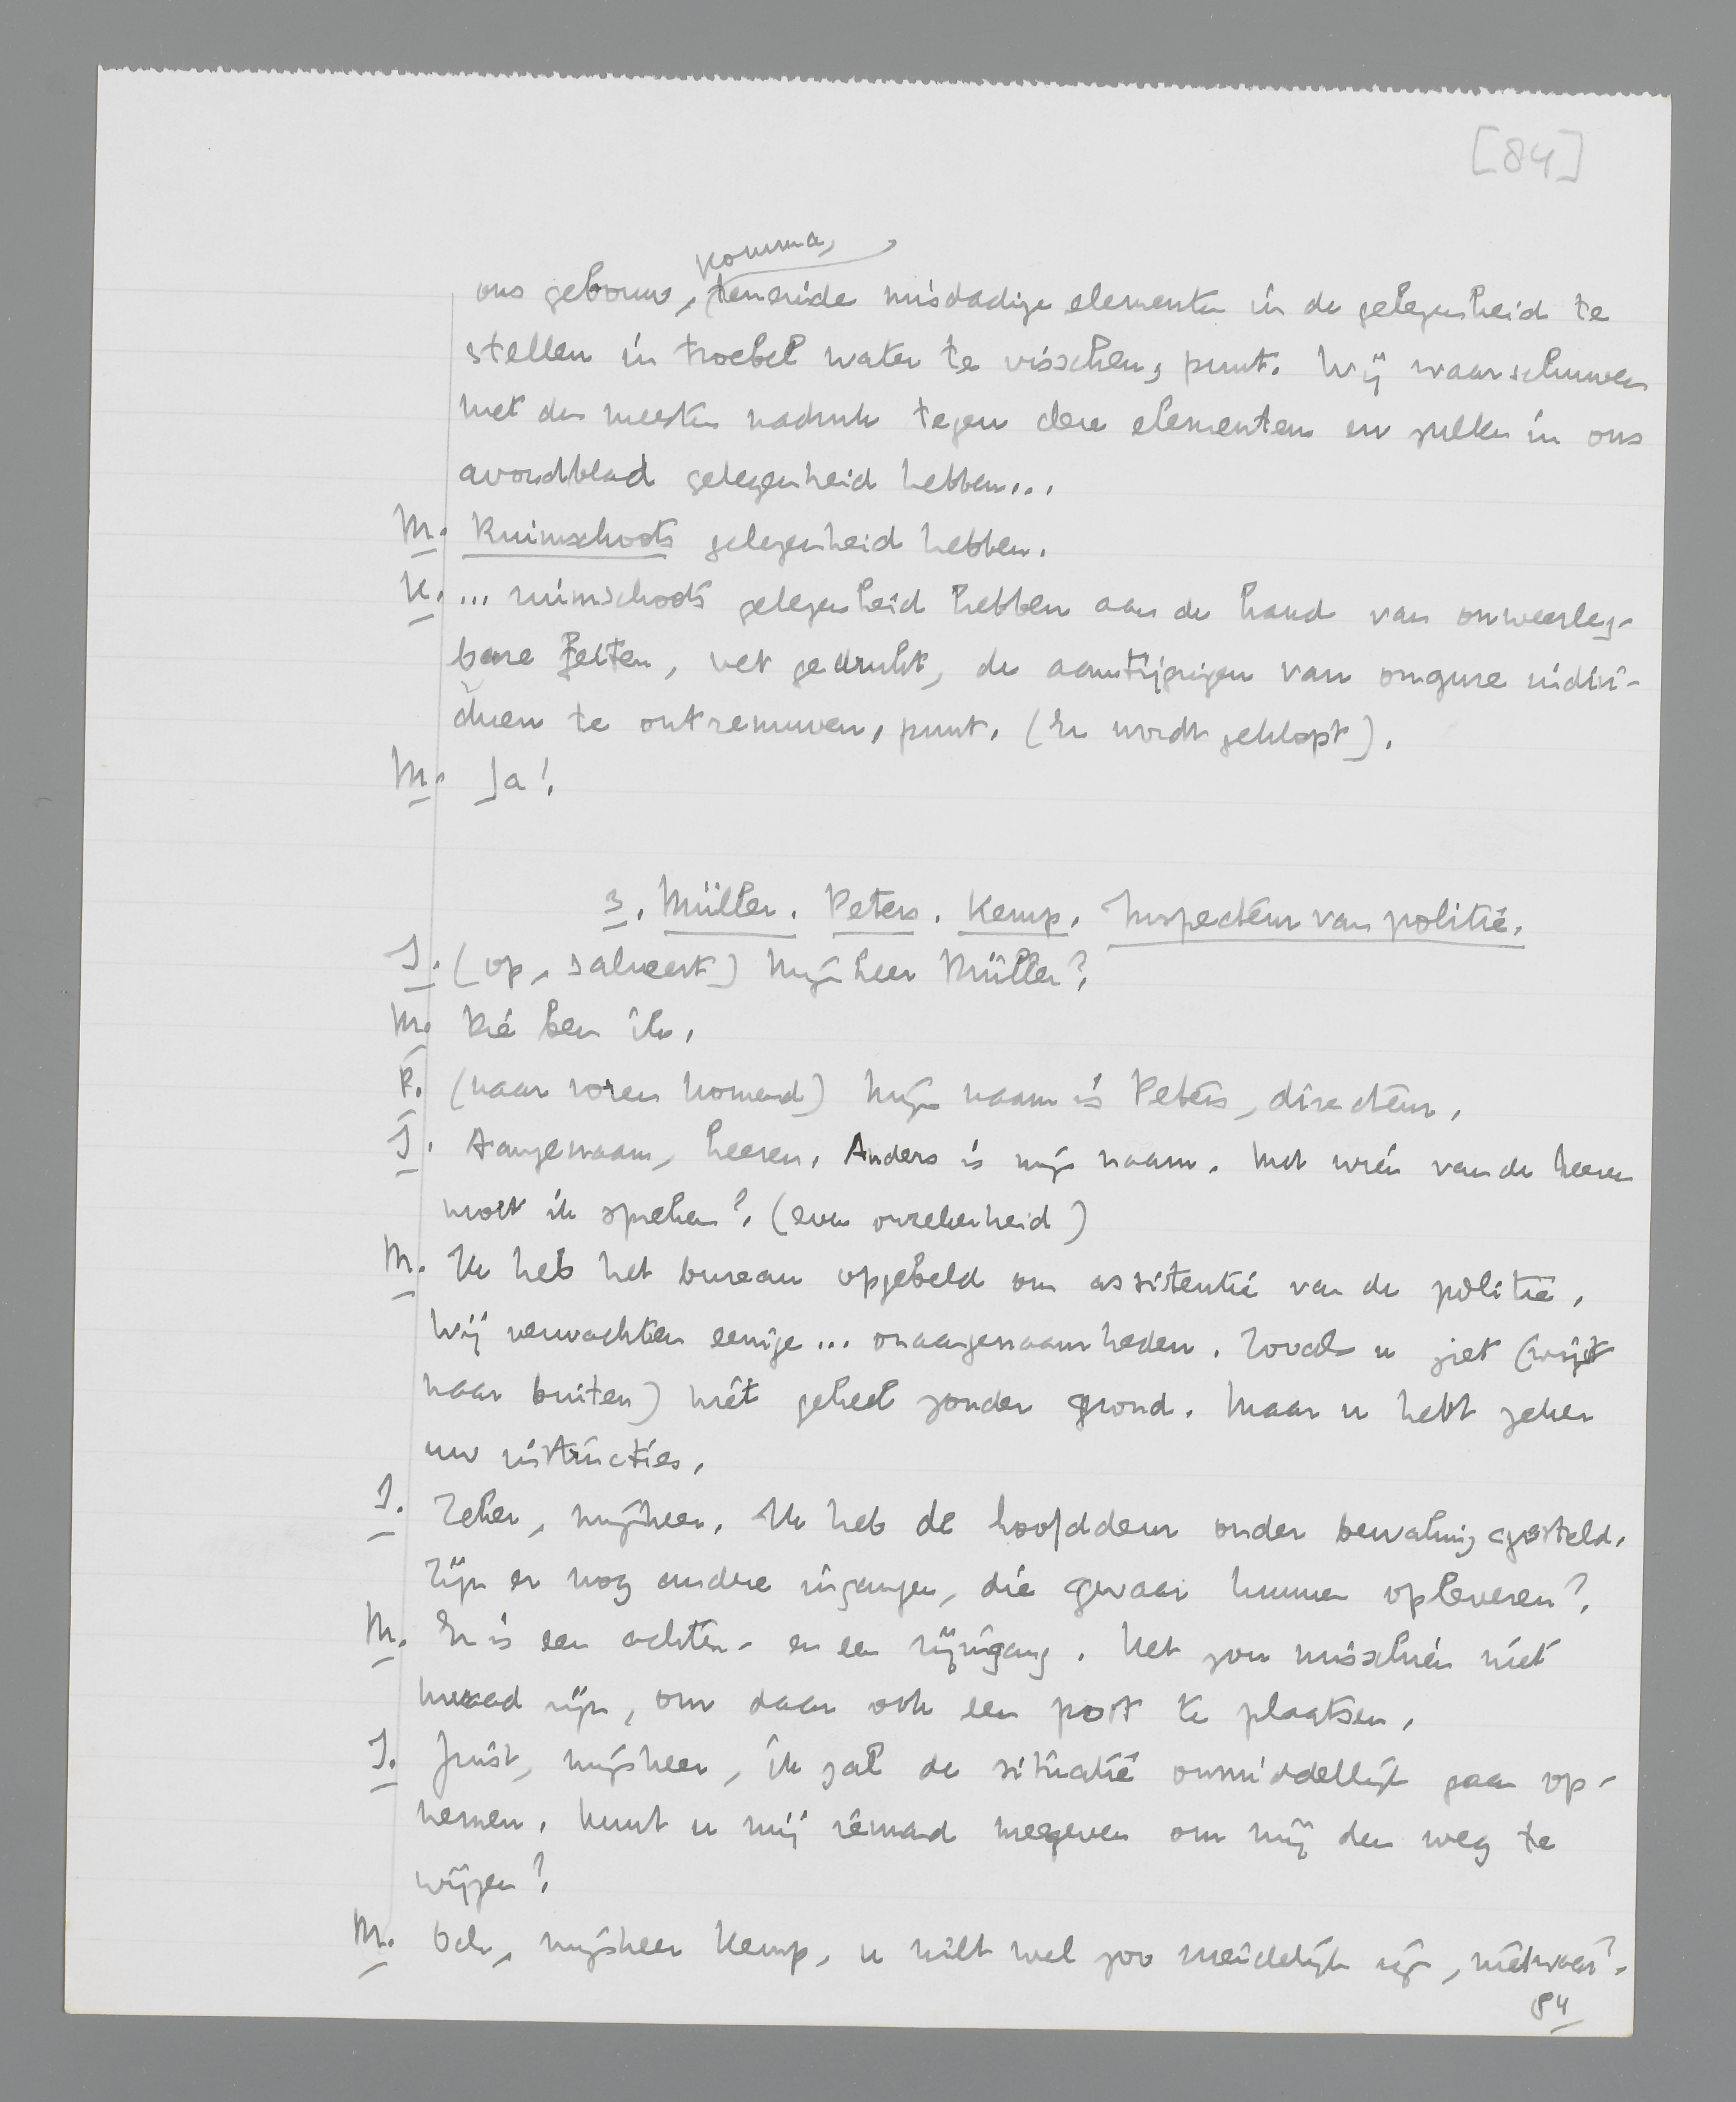 [84]
komma,
ons gebouw, teneinde misdadige elementen in de gelegenheid te
stellen in troebel water te visschen, punt. Wij waarschuwen
met den meesten nadruk tegen deze elementen en zullen in ons
avondblad gelegenheid hebben...
M. Ruimschoots gelegenheid hebben.
K. ... ruimschoots gelegenheid hebben aan de hand van onweerleg-
bare feiten, vet gedrukt, de aantijgingen van ongure indivi-
duen te ontzenuwen, punt. (Er wordt geklopt).
M. Ja!
3. Müller. Peters. Kemp. Inspecteur van politie.
I. (op, salueert) Mijnheer Müller?
M. Die ben ik.
P. (naar voren komend) Mijn naam is Peters, directeur.
I. Aangenaam, heeren. Anders is mijn naam. Met wien van de heeren
moet ik spreken? (even onzekerheid)
M. Ik heb het bureau opgebeld om assistentie van de politie.
Wij verwachten eenige... onaangenaamheden. Zooals u ziet (wijst
naar buiten) niet geheel zonder grond. Maar u hebt zeker
uw instructies.
I. Zeker, mijnheer. Ik heb de hoofddeur onder bewaking gesteld.
Zijn er nog andere ingangen, die gevaar kunnen opleveren?
M. Er is een achter- en een zijingang. Het zou misschien niet
kwaad zijn, om daar ook een post te plaatsen.
I. Juist, mijnheer, ik zal de situatie onmiddellijk gaan op-
nemen. Kunt u mij iemand meegeven om mij den weg te
wijzen?
M. Och, mijnheer Kemp, u wilt wel zoo vriendelijk zijn, nietwaar?
84